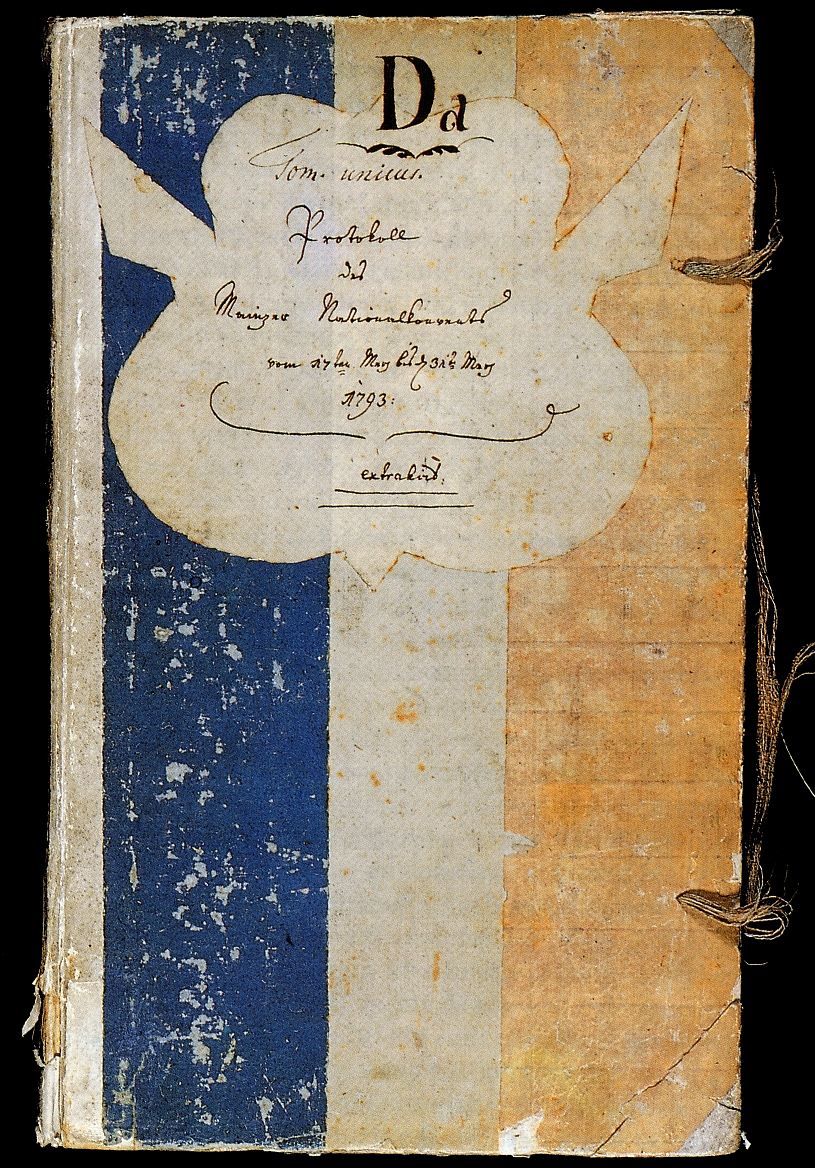 Dd
Tom. unicus.
Protokoll
des
Mainzer Nationalkonvents
vom 17ten Merz bis d 31ts Merz
1793:
extrahirt.